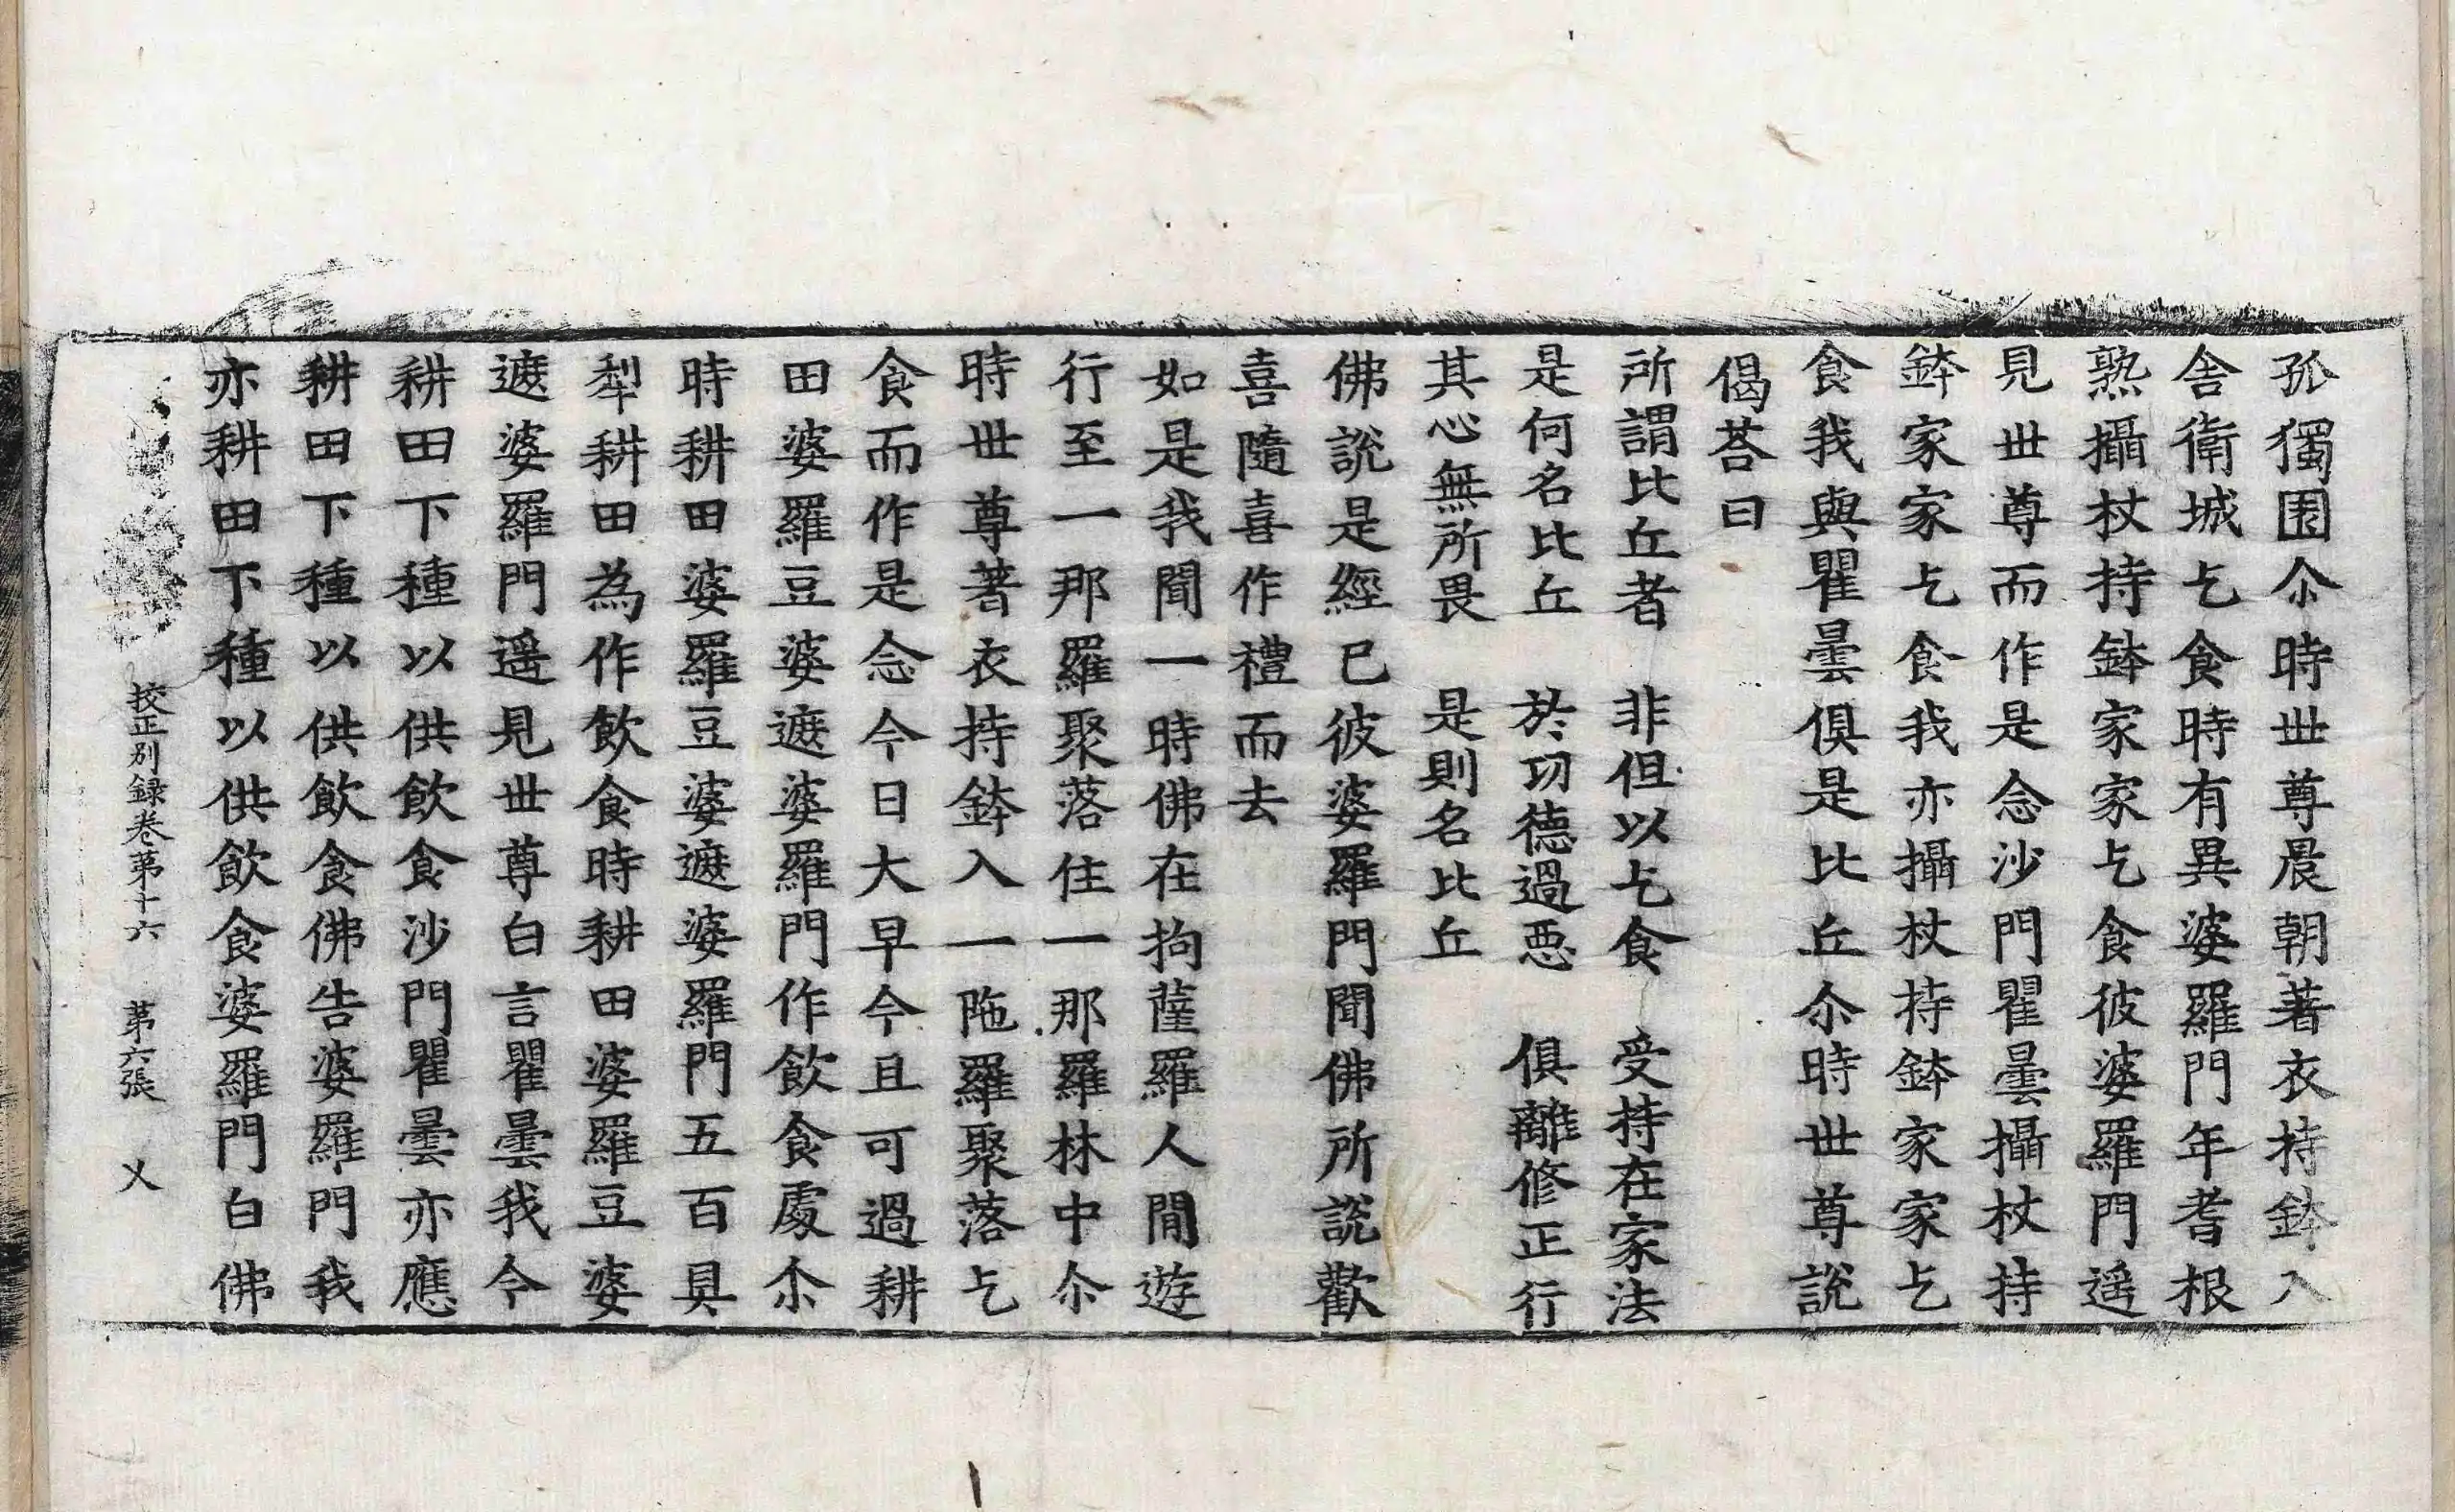 孤獨園尒時世尊晨朝著衣持鉢入
舎衛城乞食時有異婆羅門年耆根
熟攝杖持鉢家家乞食彼婆羅門遥
見世尊而作是念沙門瞿曇攝杖持
鉢家家乞食我亦攝杖持鉢家家乞
食我與瞿曇俱是比丘尒時世尊說
偈荅曰
所謂比丘者　非但以乞食　受持在家法
是何名比丘　於功德過惡　俱離修正行
其心無所畏　是則名比丘
佛說是經已彼婆羅門聞佛所說歡
喜隨喜作禮而去
如是我聞一時佛在拘薩羅人間遊
行至一那羅聚落住一那羅林中尒
時世尊著衣持鉢入一陁羅聚落乞
食而作是念今日大早今且可過耕
田婆羅豆婆遮婆羅門作飲食處尒
時耕田婆羅豆婆遮婆羅門五百具
犁耕田為作飲食時耕田婆羅豆婆
遮婆羅門遥見世尊白言瞿曇我今
耕田下種以供飲食沙門瞿曇亦應
耕田下種以供飲食佛告婆羅門我
亦耕田下種以供飲食婆羅門白佛
挍正別録卷苐十六　苐六張　乂